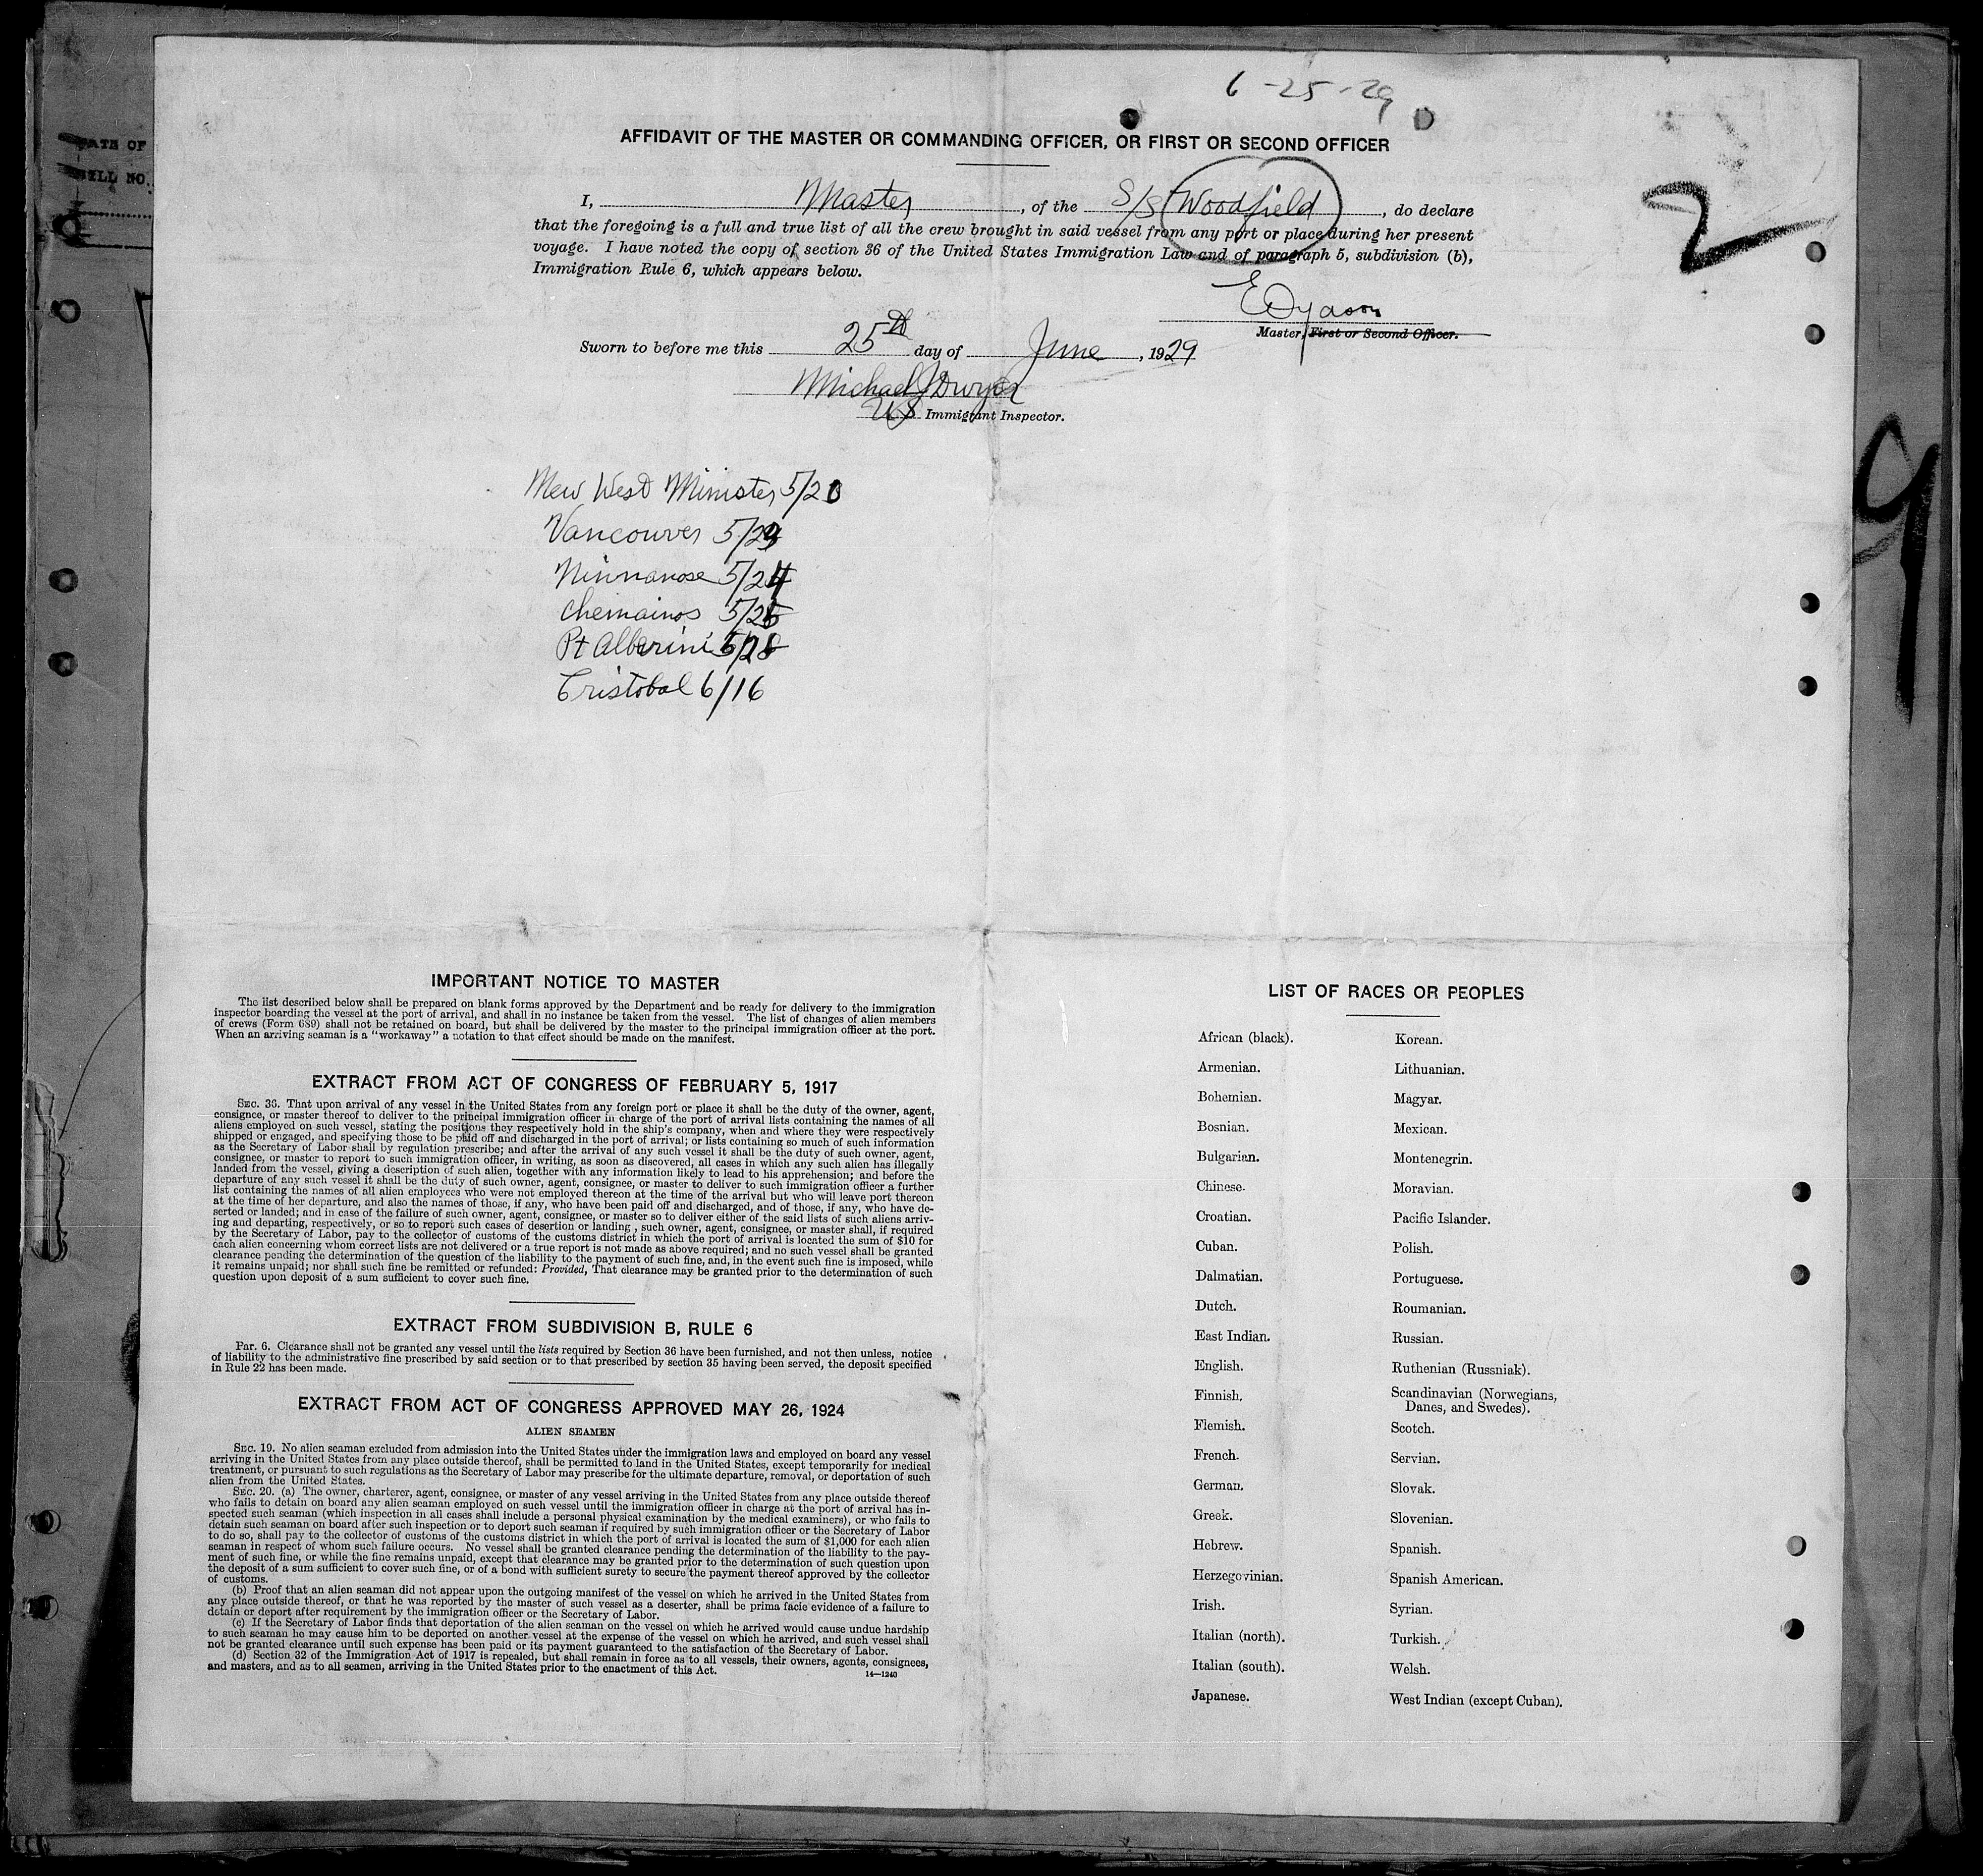 6-25-29
AFFIDAVIT OF THE MASTER OR COMMANDING OFFICER, OR FIRST OR SECOND OFFICER
2
I, Master, of the S/S Woodfield, do declare
that the foregoing is a full and true list of all the crew brought in said vessel from any port or place during her present
voyage. I have noted the copy of section 36 of the United States Immigration Law and of paragraph 5, subdivision (b),
Immigration Rule 6, which appears below.
E Dyason
Master, First or Second Officer.
Sworn to before me this 25th day of June, 1929
Michael J Dwyer
US Immigrant Inspector.
New West Minister 5/20
Vancouver 5/23
5/24
Chemainos 5/25
Pt Alberini 5/28
Cristobal 6/16
9
ATE OF
LL NO.
IMPORTANT NOTICE TO MASTER
The list described below shall be prepared on blank forms approved by the Department and be ready for delivery to the immigration
inspector boarding the vessel at the port of arrival, and shall in no instance be taken from the vessel. The list of changes of alien members
of crews (Form 689) shall not be retained on board, but shall be delivered by the master to the principal immigration officer at the port.
When an arriving seaman is a "workaway" a notation to that effect should be made on the manifest.
EXTRACT FROM ACT OF CONGRESS OF FEBRUARY 5, 1917
SEC. 36. That upon arrival of any vessel in the United States from any foreign port or place it shall be the duty of the owner, agent,
consignee, or master thereof to deliver to the principal immigration officer in charge of the port of arrival lists containing the names of all
aliens employed on such vessel, stating the positions they respectively hold in the ship's company, when and where they were respectively
shipped or engaged, and specifying those to be paid off and discharged in the port of arrival; or lists containing so much of such information
as the Secretary of Labor shall by regulation prescribe; and after the arrival of any such vessel it shall be the duty of such owner, agent,
consignee, or master to report to such immigration officer, in writing, as soon as discovered, all cases in which any such alien has illegally
landed from the vessel, giving a description of such alien, together with any information likely to lead to his apprehension; and before the
departure of any such vessel it shall be the duty of such owner, agent, consignee, or master to deliver to such immigration officer a further
list containing the names of all alien employees who were not employed thereon at the time of the arrival but who will leave port thereon
at the time of her departure, and also the names of those, if any, who have been paid off and discharged, and of those, if any, who have de-
serted or landed; and in case of the failure of such owner, agent, consignee, or master so to deliver either of the said lists of such aliens arriv-
ing and departing, respectively, or so to report such cases of desertion or landing , such owner, agent, consignee, or master shall, if required
by the Secretary of Labor, pay to the collector of customs of the customs district in which the port of arrival is located the sum of $10 for
each alien concerning whom correct lists are not delivered or a true report is not made as above required; and no such vessel shall be granted
clearance pending the determination of the question of the liability to the payment of such fine, and, in the event such fine is imposed, while
it remains unpaid; nor shall such fine be remitted or refunded: Provided, That clearance may be granted prior to the determination of such
question upon deposit of a sum sufficient to cover such fine.
EXTRACT FROM SUBDIVISION B, RULE 6
PAR. 6. Clearance shall not be granted any vessel until the lists required by Section 36 have been furnished, and not then unless, notice
of liability to the administrative fine prescribed by said section or to that prescribed by section 35 having been served, the deposit specified
in Rule 22 has been made.
EXTRACT FROM ACT OF CONGRESS APPROVED MAY 26, 1924
ALIEN SEAMEN
SEC. 19. No alien seaman excluded from admission into the United States under the immigration laws and employed on board any vessel
arriving in the United States from any place outside thereof, shall be permitted to land in the United States, except temporarily for medical
treatment, or pursuant to such regulations as the Secretary of Labor may prescribe for the ultimate departure, removal, or deportation of such
alien from the United States.
SEC. 20. (a) The owner, charterer, agent, consignee, or master of any vessel arriving in the United States from any place outside thereof
who fails to detain on board any alien seaman employed on such vessel until the immigration officer in charge at the port of arrival has in-
spected such seaman (which inspection in all cases shall include a personal physical examination by the medical examiners), or who fails to
detain such seaman on board after such inspection or to deport such seaman if required by such immigration officer or the Secretary of Labor
to do so, shall pay to the collector of customs of the customs district in which the port of arrival is located the sum of $1,000 for each alien
seaman in respect of whom such failure occurs. No vessel shall be granted clearance pending the determination of the liability to the pay-
ment of such fine, or while the fine remains unpaid, except that clearance may be granted prior to the determination of such question upon
the deposit of a sum sufficient to cover such fine, or of a bond with sufficient surety to secure the payment thereof approved by the collector
of customs.
(b) Proof that an alien seaman did not appear upon the outgoing manifest of the vessel on which he arrived in the United States from
any place outside thereof, or that he was reported by the master of such vessel as a deserter, shall be prima facie evidence of a failure to
detain or deport after requirement by the immigration officer or the Secretary of Labor.
(c) If the Secretary of Labor finds that deportation of the alien seaman on the vessel on which he arrived would cause undue hardship
to such seaman he may cause him to be deported on another vessel at the expense of the vessel on which he arrived, and such vessel shall
not be granted clearance until such expense has been paid or its payment guaranteed to the satisfaction of the Secretary of Labor.
(d) Section 32 of the Immigration Act of 1917 is repealed, but shall remain in force as to all vessels, their owners, agents, consignees,
and masters, and as to all seamen, arriving in the United States prior to the enactment of this Act.
14—1240
LIST OF RACES OR PEOPLES
African (black).
Armenian.
Bohemian.
Bosnian.
Bulgarian.
Chinese.
Croatian.
Cuban.
Dalmatian.
Dutch.
East Indian.
English.
Finnish.
Flemish.
French.
German.
Greek.
Hebrew.
Herzegovinian.
Irish.
Italian (north).
Italian (south).
Japanese.
Korean.
Lithuanian.
Magyar.
Mexican.
Montenegrin.
Moravian.
Pacific Islander.
Polish.
Portuguese.
Roumanian.
Russian.
Ruthenian (Russniak).
Scandinavian (Norwegians,
Danes, and Swedes).
Scotch.
Servian.
Slovak.
Slovenian.
Spanish.
Spanish American.
Syrian.
Turkish.
Welsh.
West Indian (except Cuban).